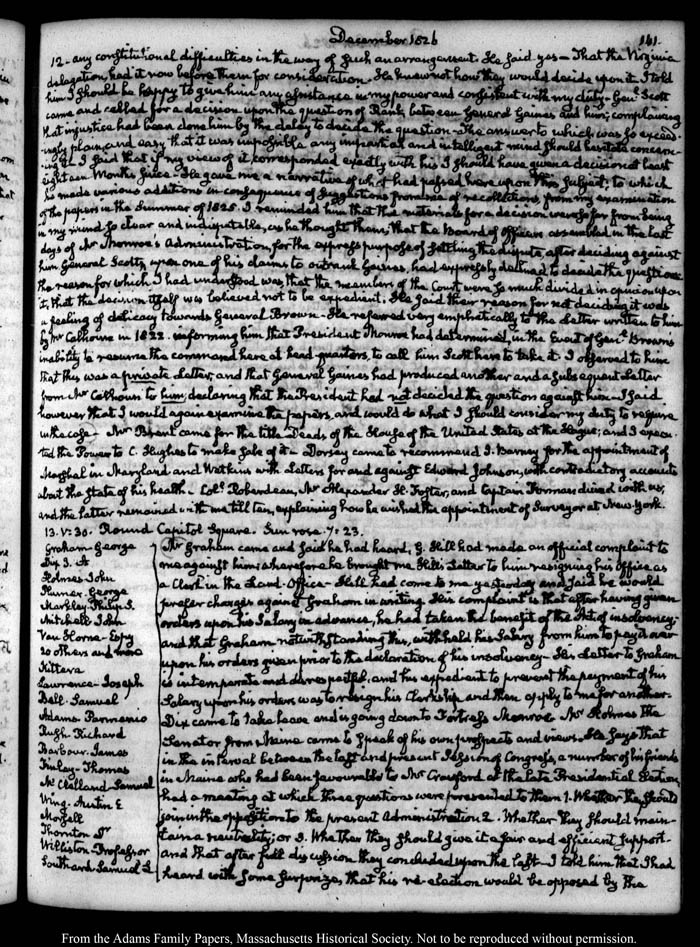 December 1826
141.
12. any constitutional difficulties in the way of such an arrangement. He said yes — That the Virginia
delegation, had it now before them for consideration. He knew not how they would decide upon it. I told
him I should be happy to give him any assistance in my power and consistent with my duty. Genl. Scott
came and called for a decision upon the question of Rank, between General Gaines and him; complaining
that injustice had been done him by the delay to decide the question. The answer to which was so exceed-
ingly plain, and easy that it was impossible any impartial and intelligent mind should hesitate concern-
ing it. I said that if my view of it corresponded exactly with his I should have given a decision at least
eighteen Months since. He gave me a narrative of what had passed here upon this subject; to which
he made various additions in consequence of suggestions from me of recollections, from my examination
of the papers in the Summer of 1825. I reminded him that the materials for a decision were so far from being
in my mind so clear and indisputable, as he thought them, that the board of Officers assembled in the last
days of Mr. Monroe's Administration, for the express purpose of settling the dispute, after deciding against
him General Scott, upon one of his claims to outrank Gaines, had expressly declined to decide the question
the reason for which I had understood was that the members of the Court were so much divided in opinion upon
it, that the decision itself was believed not to be expedient. He said their reason for not deciding it was
a feeling of delicacy towards General Brown. He referred very emphatically to the Letter written to him
by Mr. Calhoun in 1822. informing him that President Monroe had determined, in the Event of Genl. Brown's
inability to resume the command here at head-quarters, to call him Scott here to take it. I observed to him
that this was a private Letter, and that General Gaines had produced another and a subsequent Letter
from Mr. Calhoun to him, declaring that the President had not decided the question against him. I said
however that I would again examine the papers, and would do what I should consider my duty to require
in the case. Mr. Brent came for the title Deeds of the House of the United States at the Hague; and I execu-
ted the Power to C. Hughes to make sale of it. Dorsey came to recommend I. Barney for the appointment of
Marshal in Maryland and Watkins with Letters for and against Edward Johnson, with contradictory accounts
about the state of his health. Coll. Roberdeau, Mr. Alexander H. Foster, and Captain Forman dined with us,
and the latter remained with me till ten, explaining how he wished the appointment of Surveyor at New-York.
13. V:30. Round Capitol Square. Sun rose 7:23.
Graham George
Dix J. A
Holmes John
Plumer. George
Markley Philip S.
Mitchell John
Van Horne. Espy
20 others and more
Kittera
Lawrence. Joseph
Bell. Samuel
Adams Parmenio
Rush Richard
Barbour. James
Finlay. Thomas
Mc.Clelland. Samuel
Wing. Austin E
Thornton Dr
Williston. Professor
Southard. Samuel L
Mr Graham came and said he had heard, G. Hill had made an official complaint to
me against him; wherefore he brought me Hill's Letter to him resigning his Office as
a Clerk in the Land-Office. Hill had come to me yesterday and said he would
prefer charges against Graham in writing. His complaint is that after having given
orders upon his Salary in advance, he had taken the benefit of the Act of insolvency;
and that Graham notwithstanding this, withheld his Salary from him to pay it over
upon his orders given prior to the declaration of his insolvency. His Letter to Graham
is intemperate and disrespectful, and his expedient to prevent the payment of his
Salary upon his orders was to resign his Clerkship and then apply to me for another.
Dix came to take leave and is going down to Fortress Monroe. Mr Holmes the
Senator from Maine came to speak of his own prospects and views. He says that
in the interval between the last and present Session of Congress, a number of his friends
in Maine who had been favourable to Mr Crawford at the late Presidential Election,
had a meeting at which three questions were presented to them 1. Whether they should
join in the opposition to the present Administration 2. Whether they should main-
tain a neutrality; or 3. Whether they should give it a fair and efficient support.
and that after full discussion they concluded upon the last. I told him that I had
heard with some surprize, that his re-election would be opposed by the
From the Adams Family Papers, Massachusetts Historical Society. Not to be reproduced without permission.